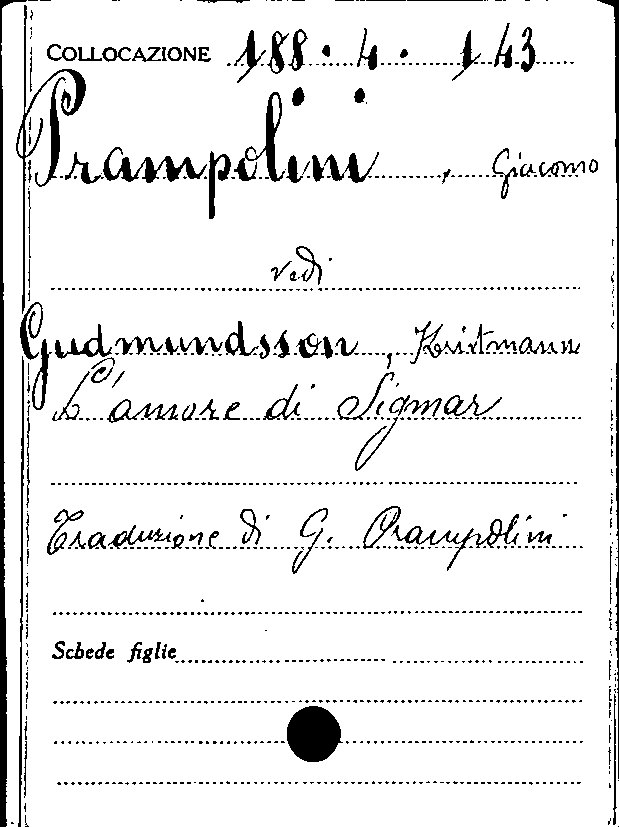 COLLOCAZIONE 188.4.143
Prampolini, Giacomo
vedi
Gudmundsson, Kristmann
L'amore di Sigmar
Traduzione di G. Prampolini
Schede figlie